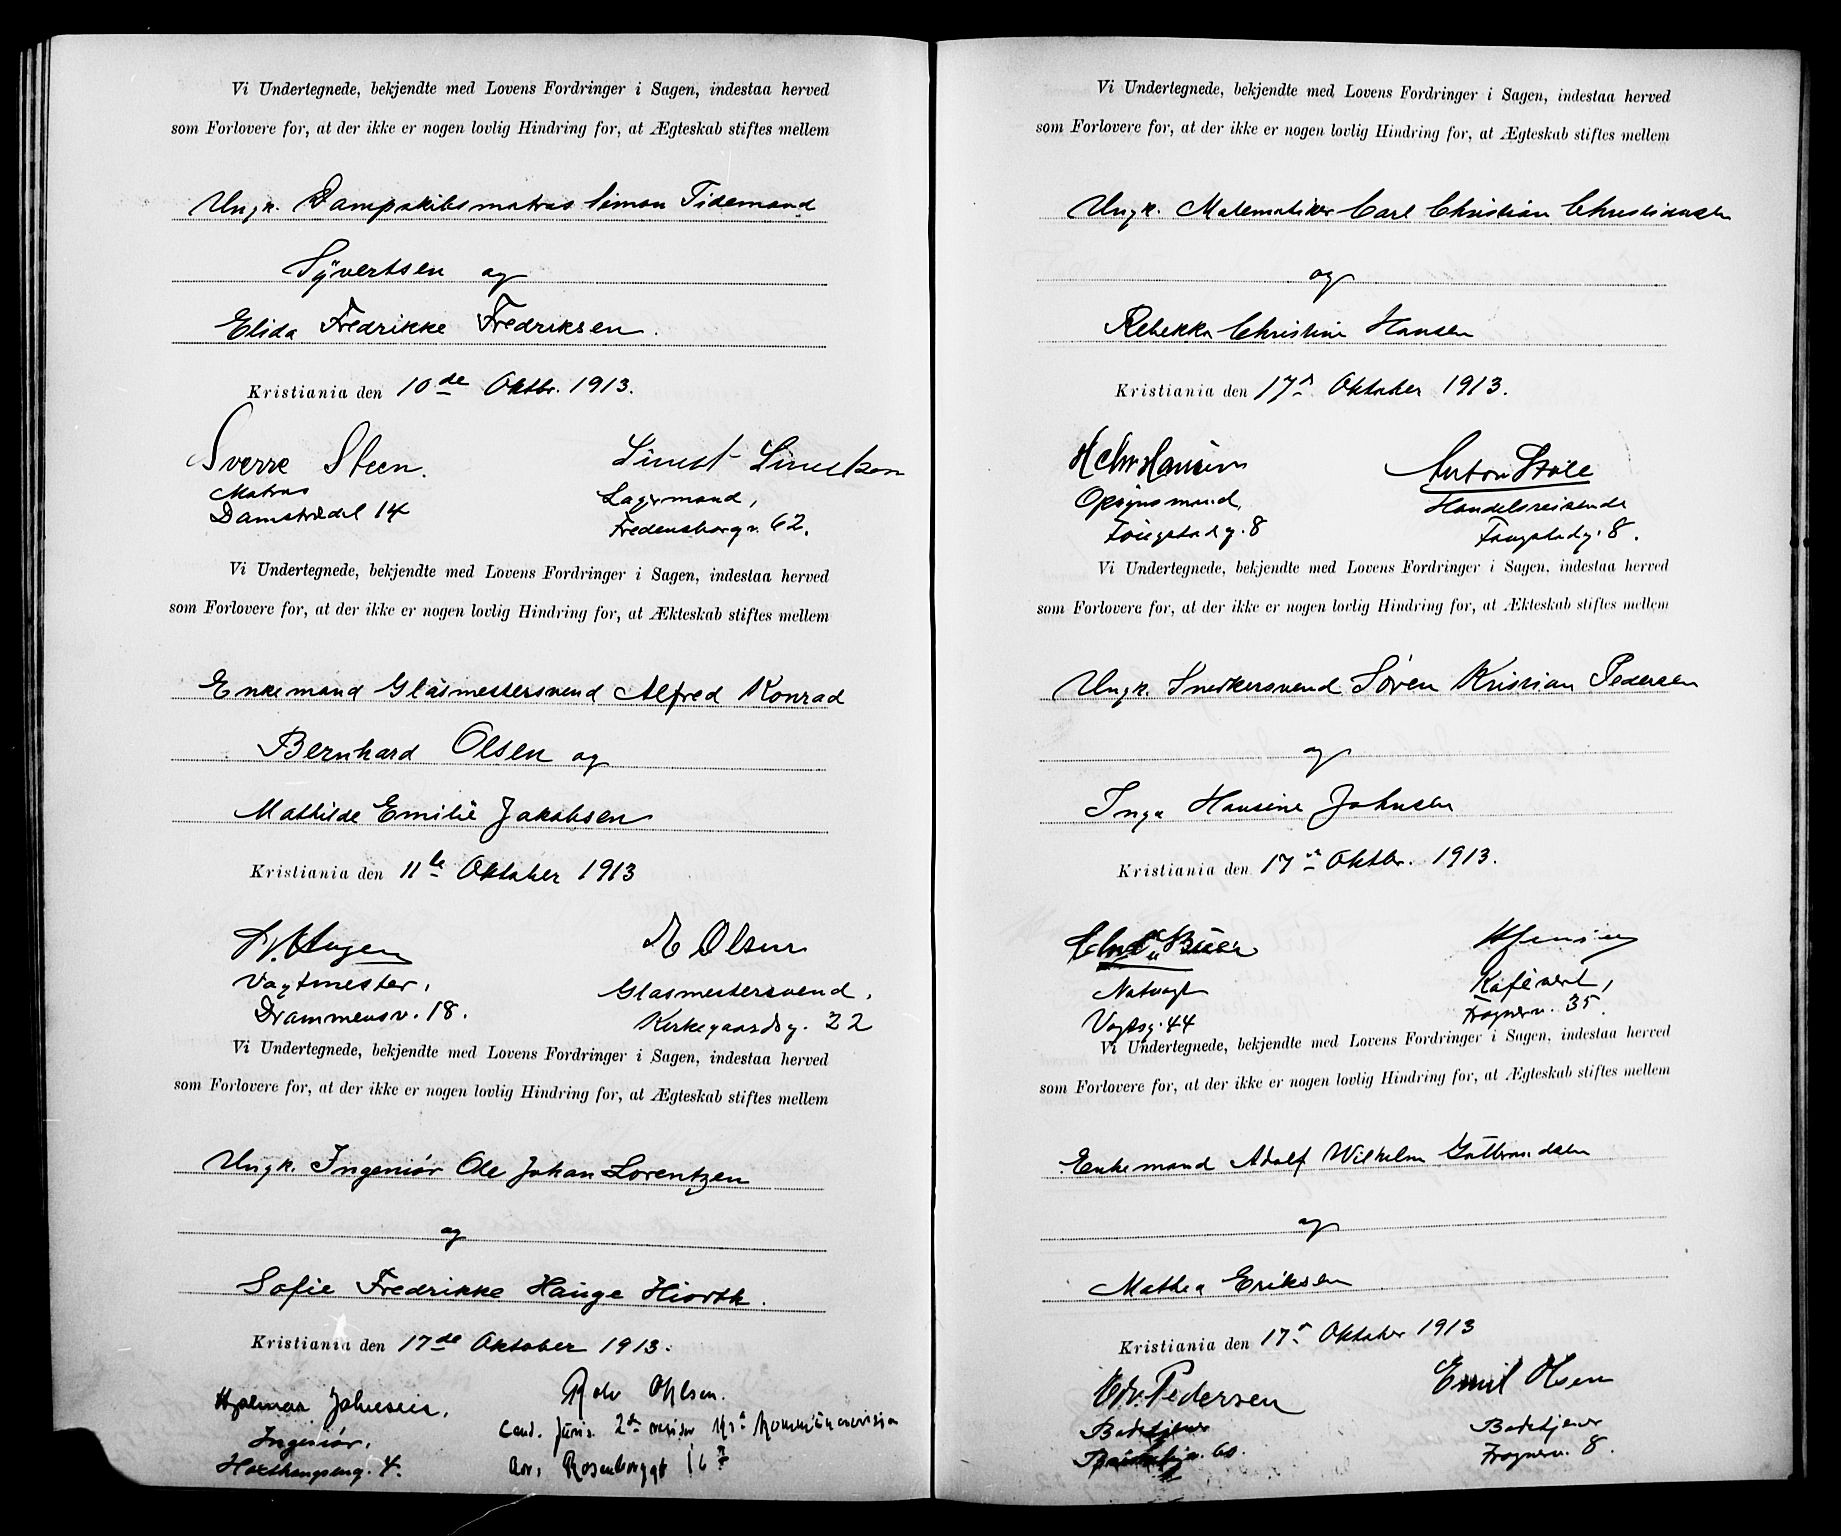 Vi Undertegnede, bekjendte med Lovens Fordringer i Sagen, indestaa herved
som Forlovere for, at der ikke er nogen lovlig Hindring for, at Ægteskab stiftes mellem
Ungk. Dampskibsmatros Simon Tidemand
Syvertsen og
Elida Fredrikke Fredriksen.
Kristiania den 10de Oktbr. 1913.
Sverre Steen.
Matros
Damstrædet 14
Lagermand,
Fredensborgv. 62.
Vi Undertegnede, bekjendte med Lovens Fordringer i Sagen, indestaa herved
som Forlovere for, at der ikke er nogen lovlig Hindring for, at Ækteskab stiftes mellem
Enkemand Glasmestersvend Alfred Konrad
Bernhard Olsen og
Mathilde Emilie Jakobsen
Kristiania den 11te Oktober 1913
Vagtmester,
Drammensv. 18.
E Olsen
Glasmestersvend,
Kirkegaardsg. 22
Vi Undertegnede, bekjendte med Lovens Fordringer i Sagen, indestaa herved
som Forlovere for, at der ikke er nogen lovlig Hindring for, at Ægteskab stiftes mellem
Ungk. Ingeniør Ole Johan Lorentzen
og
Sofie Fredrikke Hauge Hiorth.
Kristiania den 17de Oktober 1913.
Hjalmar Johnsen,
Ingeniør,
4.
Rolv Ohlsen.
Cand. juris. 2den revisor Kra Kommunerevision
Adr. Rosenborggt 16
Vi Undertegnede, bekjendte med Lovens Fordringer i Sagen, indestaa herved
som Forlovere for, at der ikke er nogen lovlig Hindring for, at Ægteskab stiftes mellem
Ungk. Matematiker Carl Christian Christiansen
og
Rebekka Christine Hansen
Kristiania den 17de Oktober 1913.
H Chr Hansen
Opsynsmand,
8
Anton Støle
Handelsreisende
8.
Vi Undertegnede, bekjendte med Lovens Fordringer i Sagen, indestaa herved
som Forlovere for, at der ikke er nogen lovlig Hindring for, at Ækteskab stiftes mellem
Ungk. Snedkersvend Søren Kristian Pedersen
og
Inga Hansine Johnsen
Kristiania den 17de Oktbr. 1913.
Natvagt
Vogtsg. 44
H Jensen
Kafévert,
Frognerv. 35.
Vi Undertegnede, bekjendte med Lovens Fordringer i Sagen, indestaa herved
som Forlovere for, at der ikke er nogen lovlig Hindring for, at Ægteskab stiftes mellem
Enkemand Adolf Wilhelm Gulbrandsen
og
Mathea Eriksen
Kristiania den 17de Oktober 1913
Edv. Pedersen
Badetjener
60.
Emil Olsen
Badetjener
Frognerv. 8.